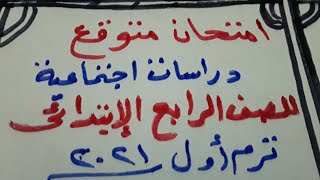 امتحان متوقع
دراسات اجتماعية
للصف الرابع الإبتدائى
ترم أول ٢٠٢١